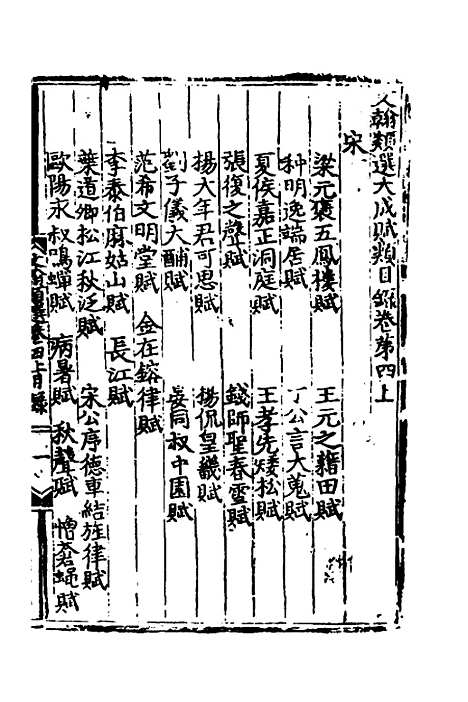 文翰類選大成賦類目錄卷第四上
宋
梁元褒五鳳樓賦 王元之籍田賦
种明逸端居賦 丁公言大蒐賦
夏侯嘉正洞庭賦 王孝先矮松賦
張復之聲賦 錢師聖春雪賦
楊大年君可思賦 楊侃皇畿賦
劉子儀大酺賦 晏同叔中園賦
范希文明堂賦 金在鎔律賦
李泰伯麻姑山賦 長江賦
葉道卿松江秋泛賦 宋公序德車結旌律賦
歐陽永叔鳴蟬賦 病暑賦 秋聲賦 憎蒼蝇賦
文翰類選卷四上目錄 一